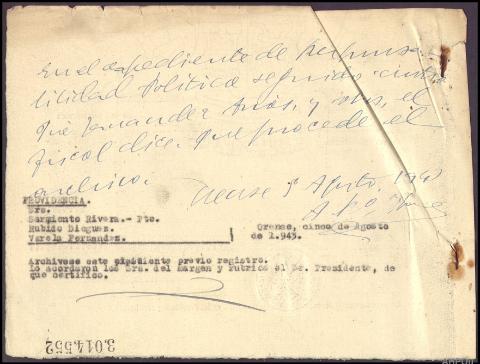 en el expediente de Responsa-
bilidad Política seguido contra
Fernández y otros, el
fiscal dice: Que procede el
archivo.
Orense 5 Agosto, 194
PROVIDENCIA.
Srs.
Sarmiento Rivera.- Pte.
Rubido Dieguez.
Varela Fernandez.
Orense, cinco de Agosto
de 1.943.
Archivese este expediente previo registro.
Lo acordaron los Srs. del margen y rubrica el Sr. Presidente, de
que certifico.
3.014.552